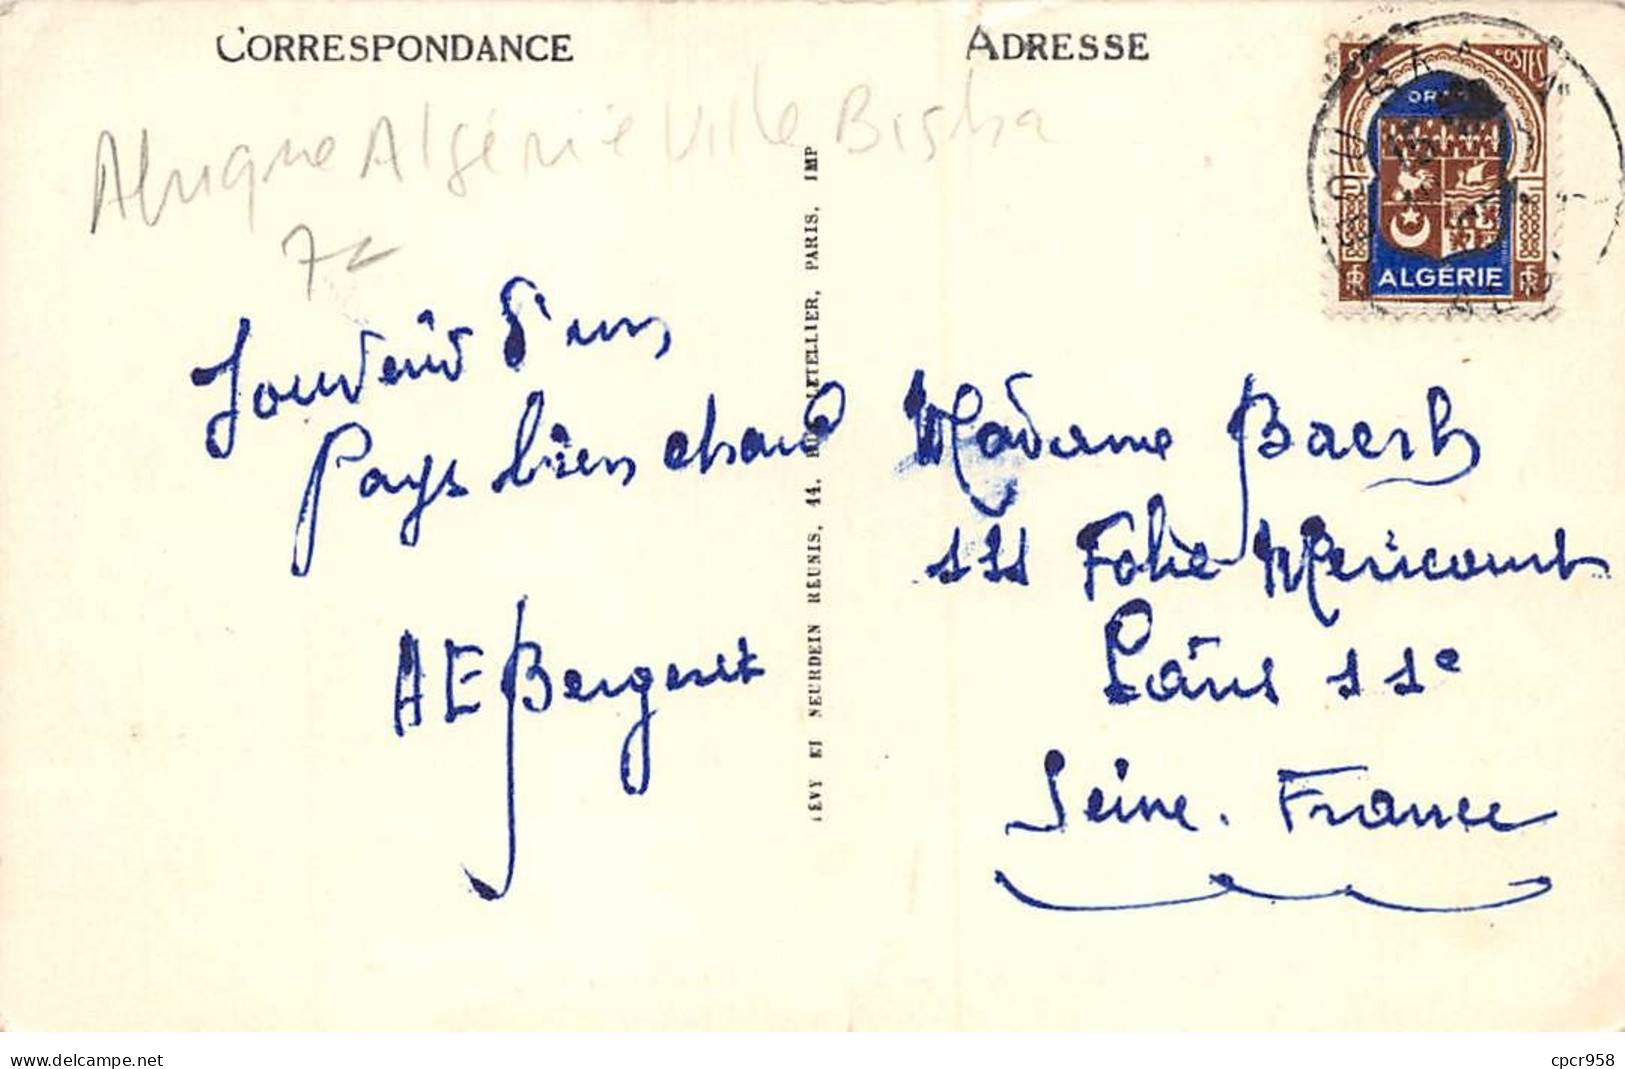 CORRESPONDANCE
ADRESSE
Afrique Algérie Ville Biskra
7€
Souvenir d'un
Pays bien chaud
AE Bergeret
LÉVY ET NEURDEIN RÉUNIS, 44, RUE LETELLIER, PARIS, IMP
POSTES
ORAN
ALGÉRIE
RF
RF
BOU SAADA
Madame Baesh
111 Folie Mericourt
Paris 11e
Seine. France
delcampe.net
cpcr958